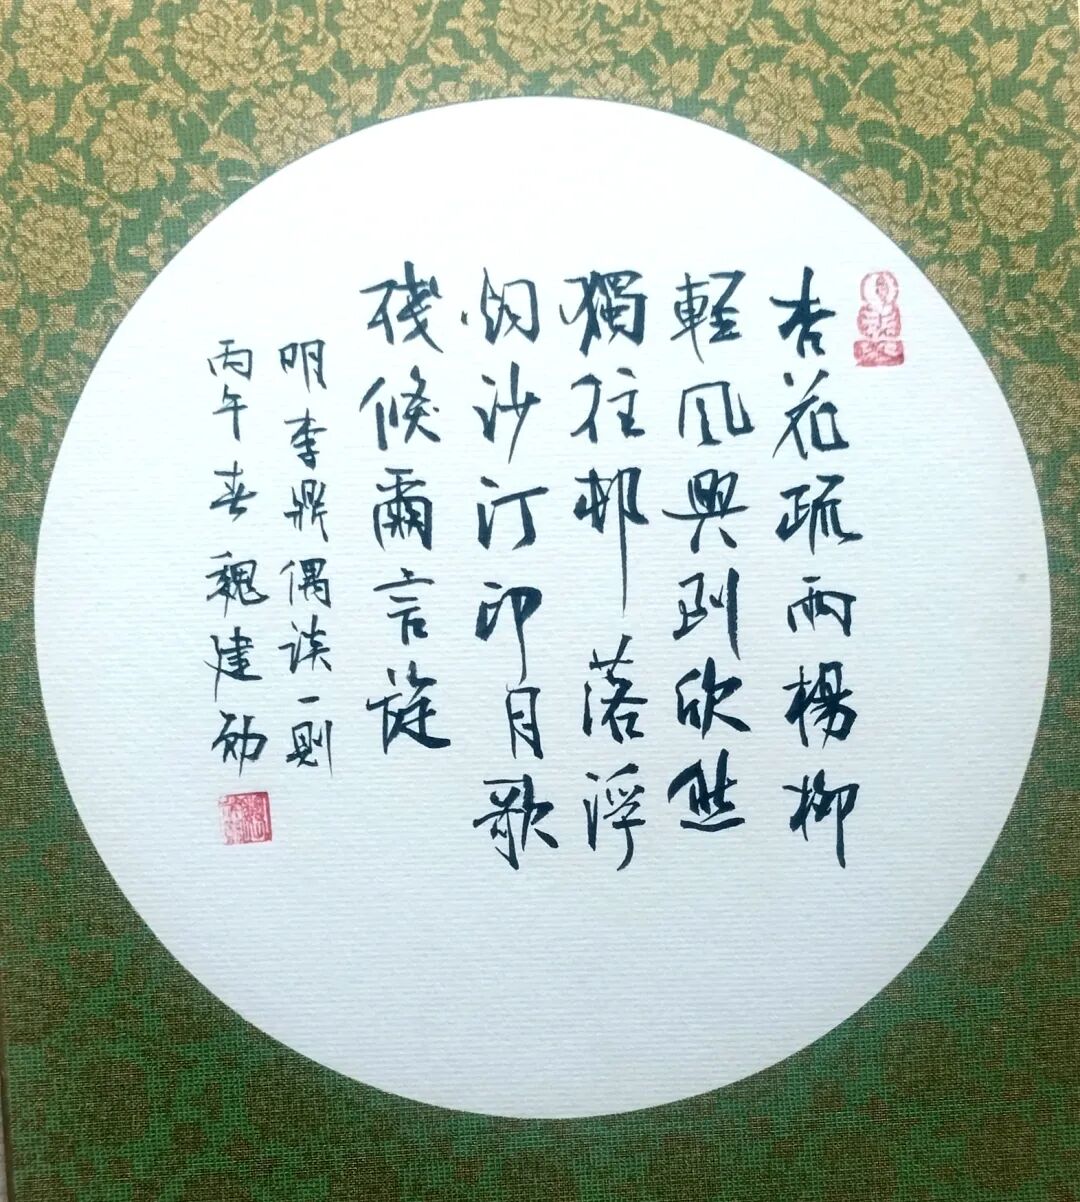 杏花疏雨楊柳
輕風興到欣然
獨往邨落浮
烟沙汀印月歌
殘倏爾言旋
明李鼎偶談一則
丙午春魏建勋